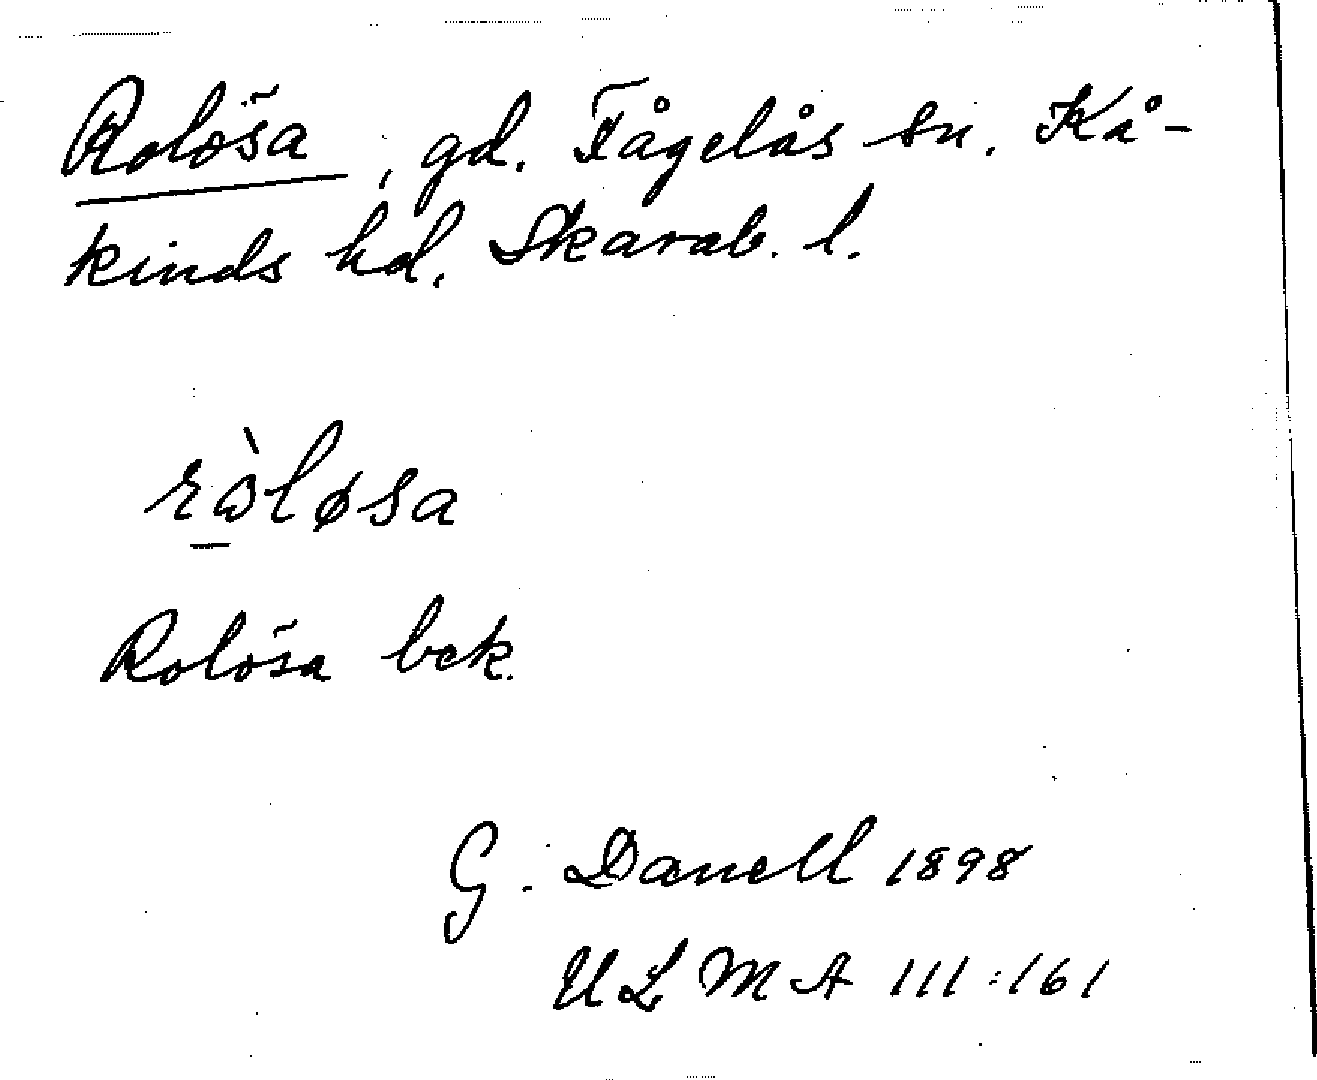 Rolösa, gd. Fågelås sn. Kå-
kinds hd. Skarab. l.
rὼløsa
Rolösa bek.
G. Danell 1898
ULMA 111:161